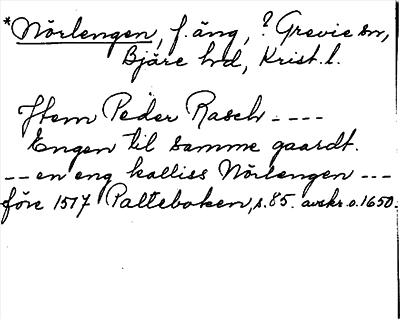 *Nörlengen, f. äng, ? Grevie sn,
Bjäre hd, Krist. l.
Jtem Peder Rasch - - - -
Engen til samme gaardt.
- - en eng kalliss Nörlengen - - -
före 1517 Palteboken, s. 85. avskr. o. 1650.